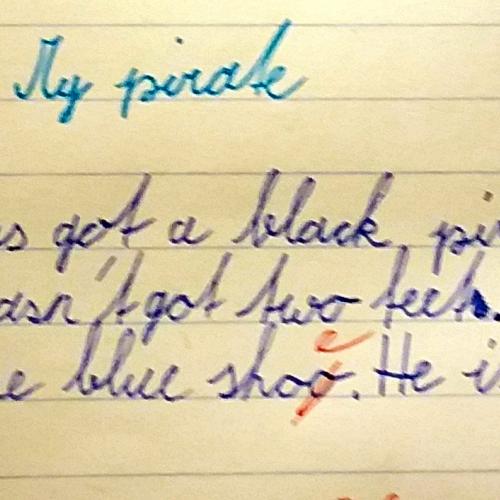 My pirate
s got a black, pi
asn't got two teet.
e blue shoo. He i